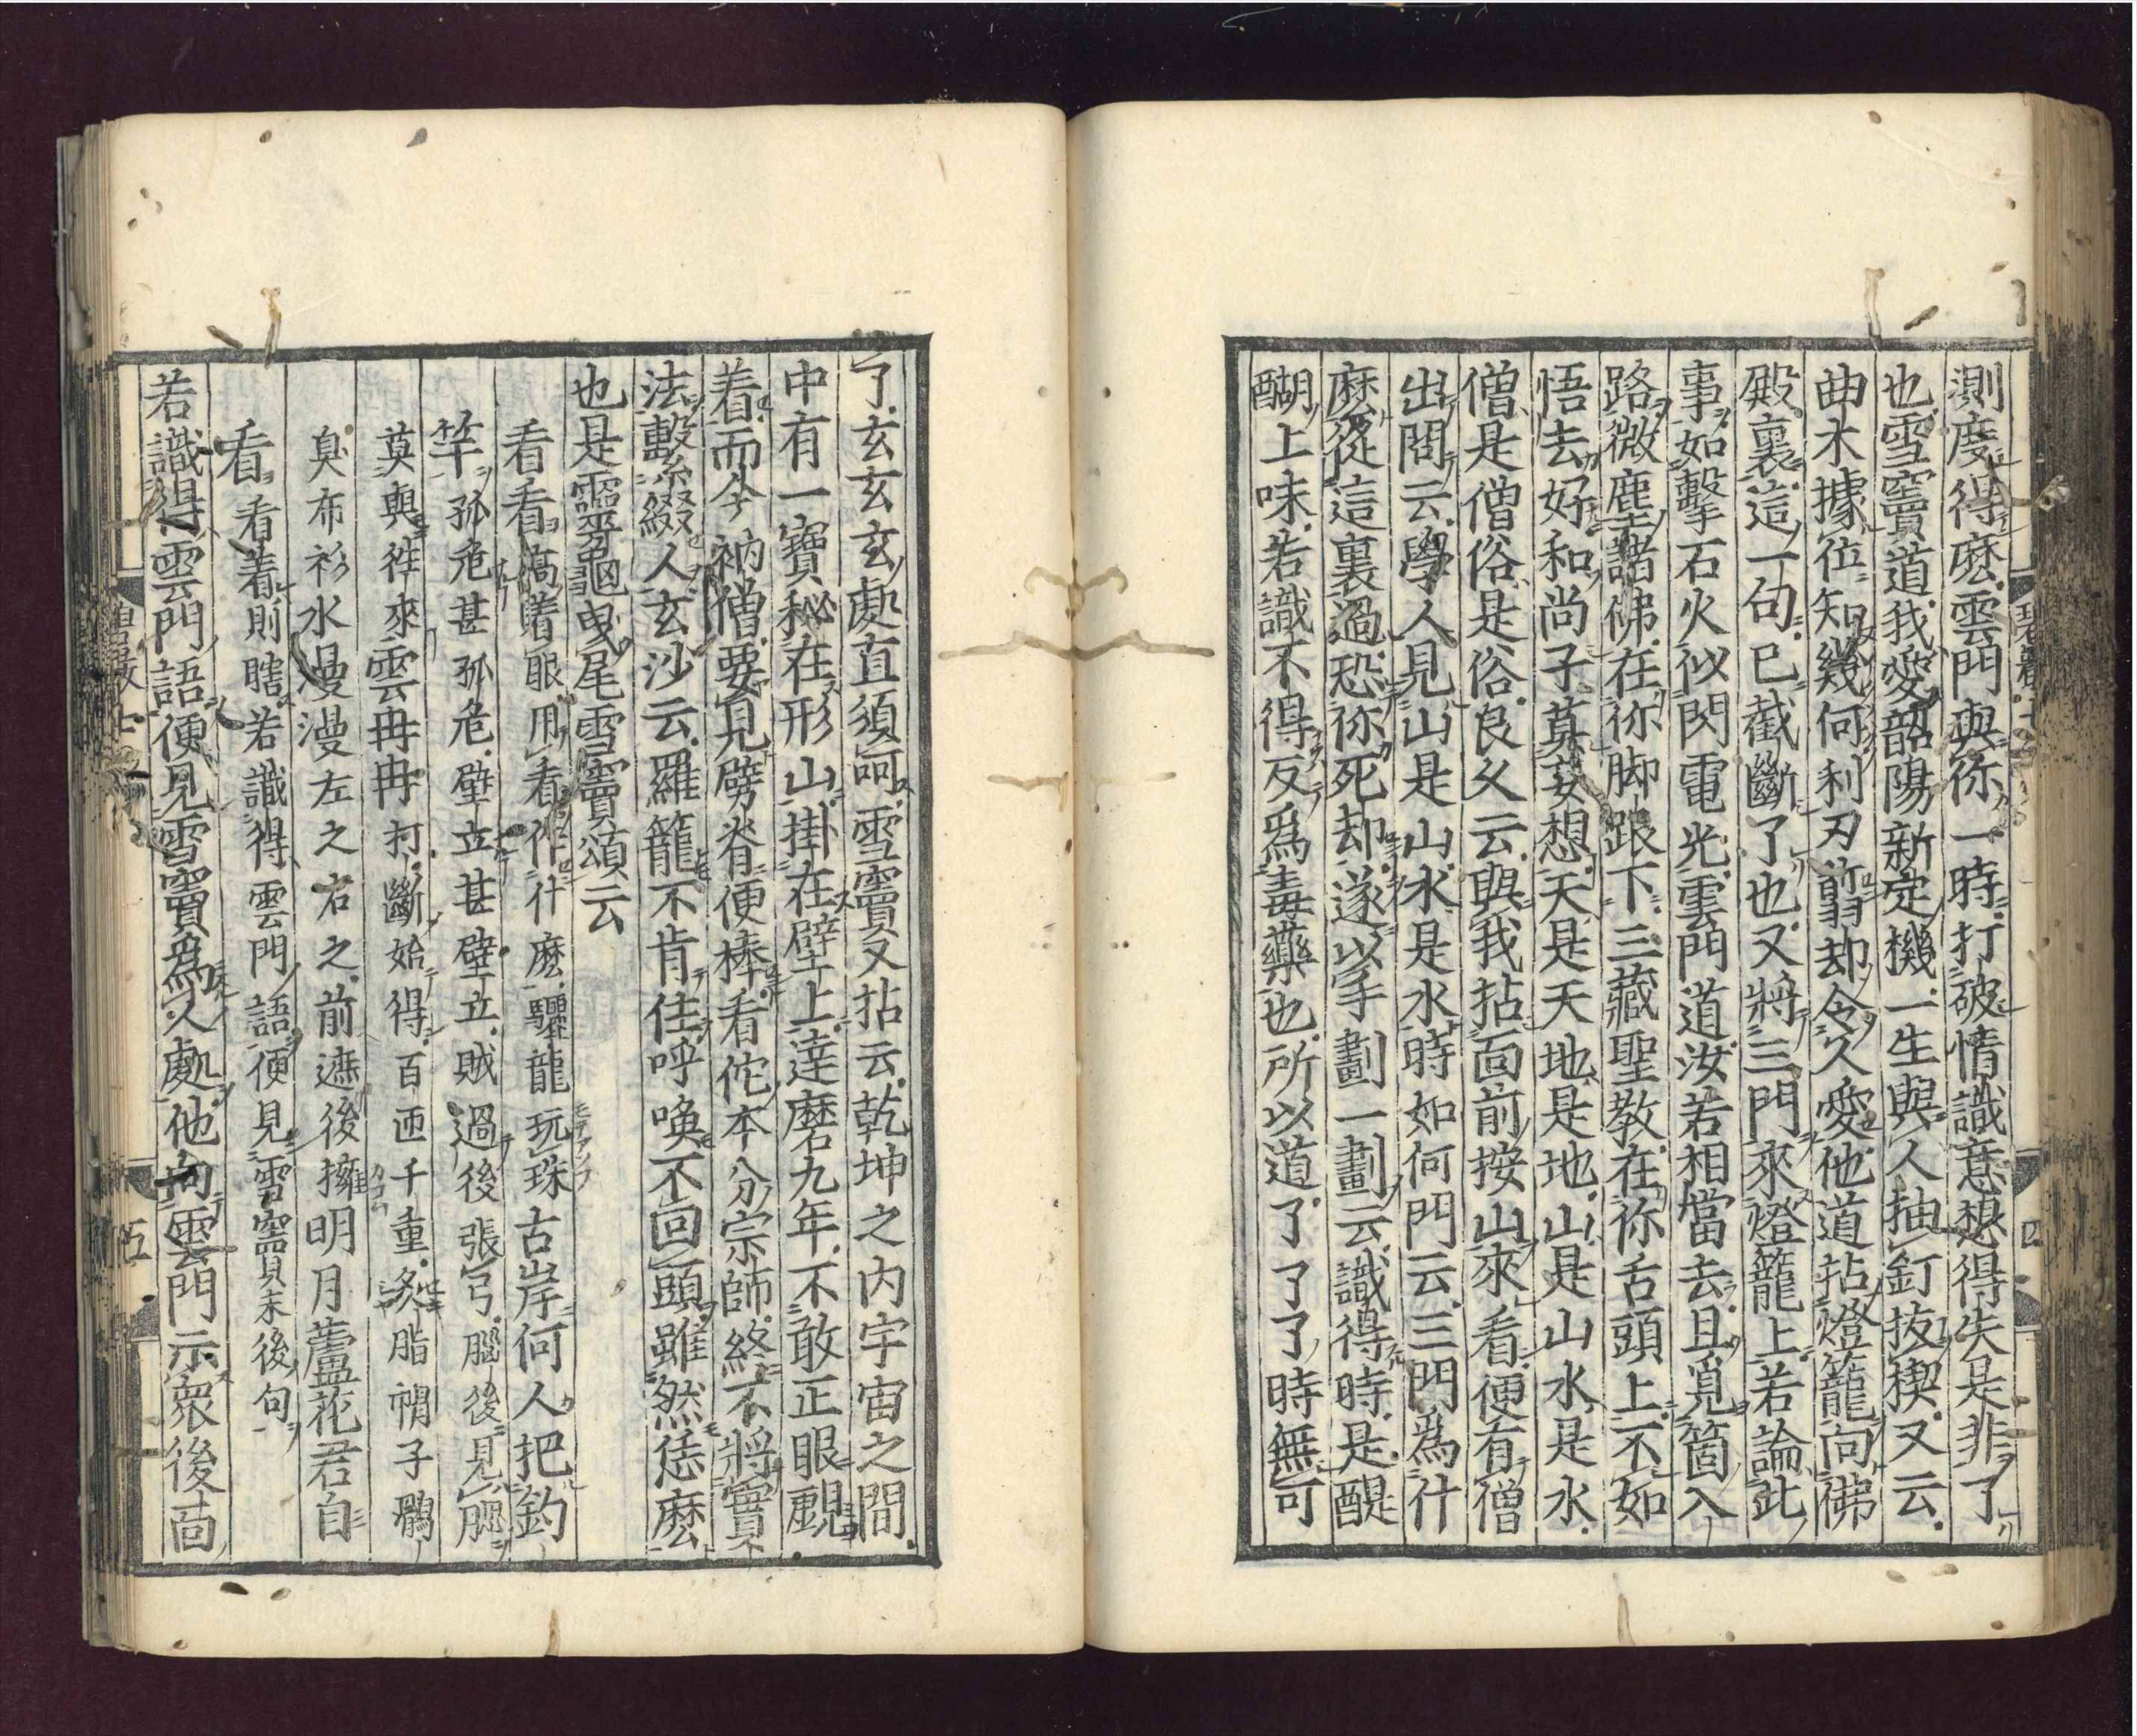 測度得麽雲門與你一時打破情識意想得失是非了
也雪竇道我愛韶陽新定機一生與人抽釘抜楔又云
曲木據位知幾何利刃翦却令人愛他道拈燈籠向佛
殿裏這一句已截斷了也又將三門來燈籠上若論此
事如擊石火似閃電光雲門道汝若相當去且覓箇入
路微塵諸佛在你脚跟下三藏聖教在你舌頭上不如
悟去好和尚子莫妄想天是天地是地山是山水是水
僧是僧俗是俗良久云與我拈面前按山來看便有僧
出問云學人見山是山水是水時如何門云三門爲什
麽從這裏過恐你死却遂以手劃一劃云識得時是醍
醐上味若識不得反爲毒藥也所以道了了了時無可
了玄玄玄處直須呵雪竇又拈云乾坤之内宇宙之間
中有一寶秘在形山掛在壁上達磨九年不敢正眼覷
着而今衲僧要見劈脊便棒看佗本分宗師終不將實
法繫綴人玄沙云羅籠不肯住呼喚不回頭雖然恁麽
也是靈龜曳尾雪竇頌云
看看高着眼用看作什麽驪龍玩珠古岸何人把釣
竿孤危甚孤危壁立甚壁立賊過後張弓腦後見腮
莫與徃來雲冉冉打斷始得百匝千重炙脂帽子鶻
臭布衫水漫漫左之右之前遮後擁明月蘆花君自
看看着則瞎若識得雲門語便見雪竇末後句
若識得雲門語便見雪竇爲人處他向雲門示衆後面
四
五